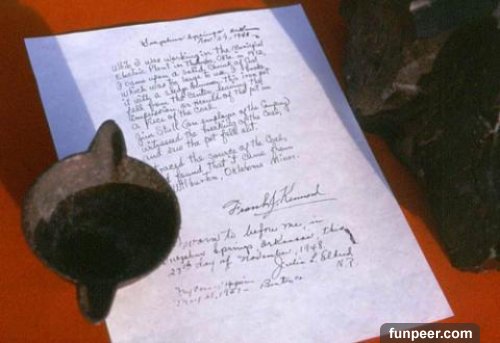 Sulphur Springs, Ark
Nov. 27, 1948
While I was working in the Municipal
Electric Plant in Thomas, Okla in 1912,
I came upon a solid chunk of coal
which was too large to use. I broke
it with a sledge hammer. This iron pot
fell from the center, leaving the
impression, or mould of the pot in
a piece of the coal.
Jim Stull (an employee of the company)
witnessed the breaking of the coal,
and saw the pot fall out.
traced the source of the coal,
found that it came from
Wilburton, Oklahoma Mines.
Frank J. Kennard
Sworn to before me, in
Sulphur Springs, Arkansas, this
27th day of November, 1948.
Julia L. Eldred
N.P.
My Com. expires
funpeer.com